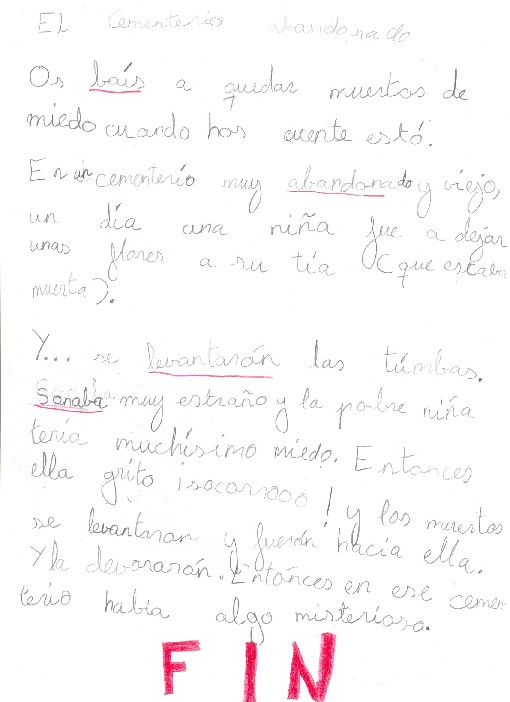 El Cementerio abandonado
Os baís a quedar muertos de
miedo cuando hos cuente estó.
En un cementerio muy abandonado y viejo,
un día una niña fue a dejar
unas flores a su tía (que estaba
muerta).
Y... se levantarón las túmbas.
Sonaba muy estraño y la pobre niña
tenía muchísimo miedo. Entonces
ella grito ¡socorrooo! y los muertos
se levantaron y fuerón hacía ella.
Y la devorarón. Entonces en ese cemen
terio había algo misterioso.
FIN